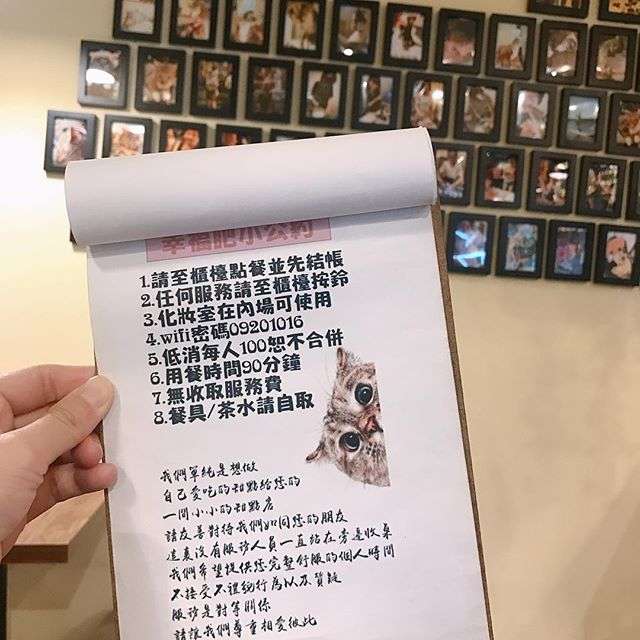 幸福肥小公約
1.請至櫃檯點餐並先結帳
2.任何服務請至櫃檯按鈴
3.化妝室在內場可使用
4.wifi密碼09201016
5.低消每人100恕不合併
6.用餐時間90分鐘
7.無收取服務費
8.餐具/茶水請自取
我們單純是想做
自己愛吃的甜點給您的
一間小小的甜點店
請友善對待我們如同您的朋友
這裏沒有服務人員一直站在旁邊收桌
我們希望提供您完整舒服的個人時間
不接受不禮貌行為以及質疑
服務是對等關係
請讓我們尊重相愛彼此